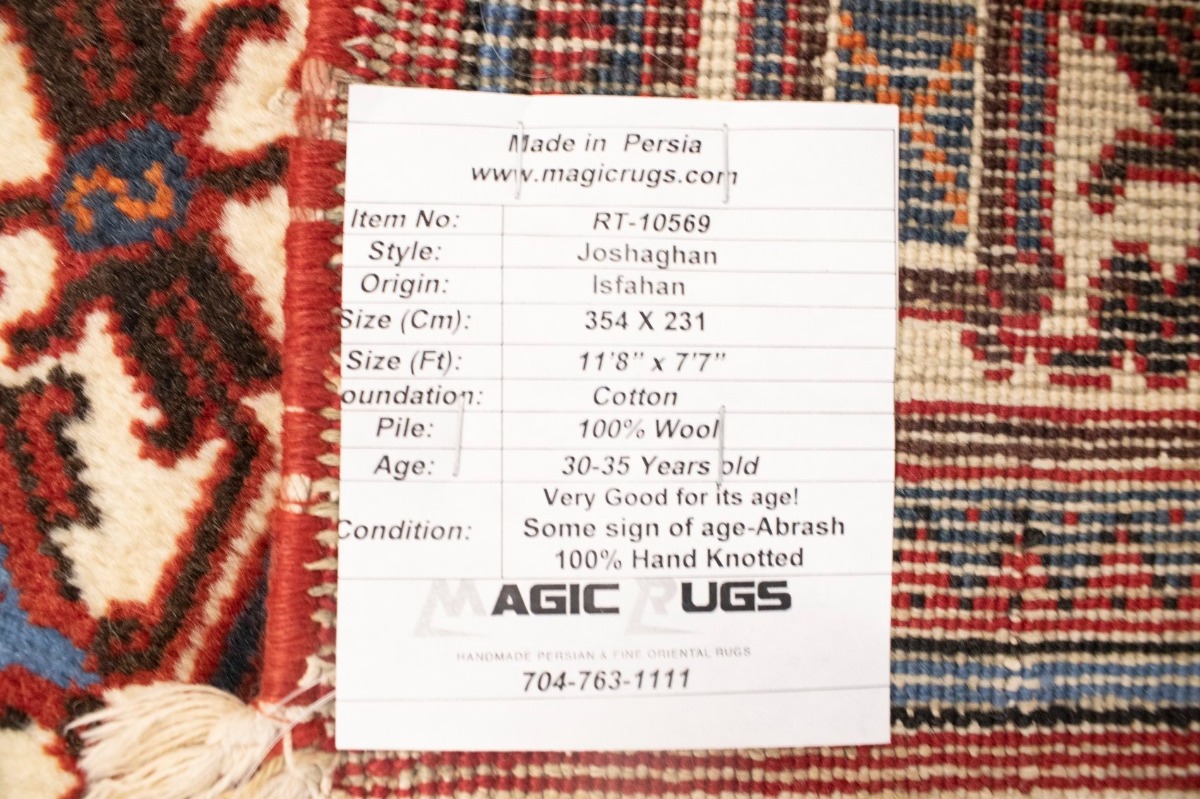 Made in Persia
www.magicrugs.com
Item No: RT-10569
Style: Joshaghan
Origin: Isfahan
Size (Cm): 354 X 231
Size (Ft): 11'8" x 7'7"
oundation: Cotton
Pile: 100% Wool
Age: 30-35 Years old
Very Good for its age!
Condition: Some sign of age-Abrash
100% Hand Knotted
MAGIC RUGS
HANDMADE PERSIAN & FINE ORIENTAL RUGS
704-763-1111